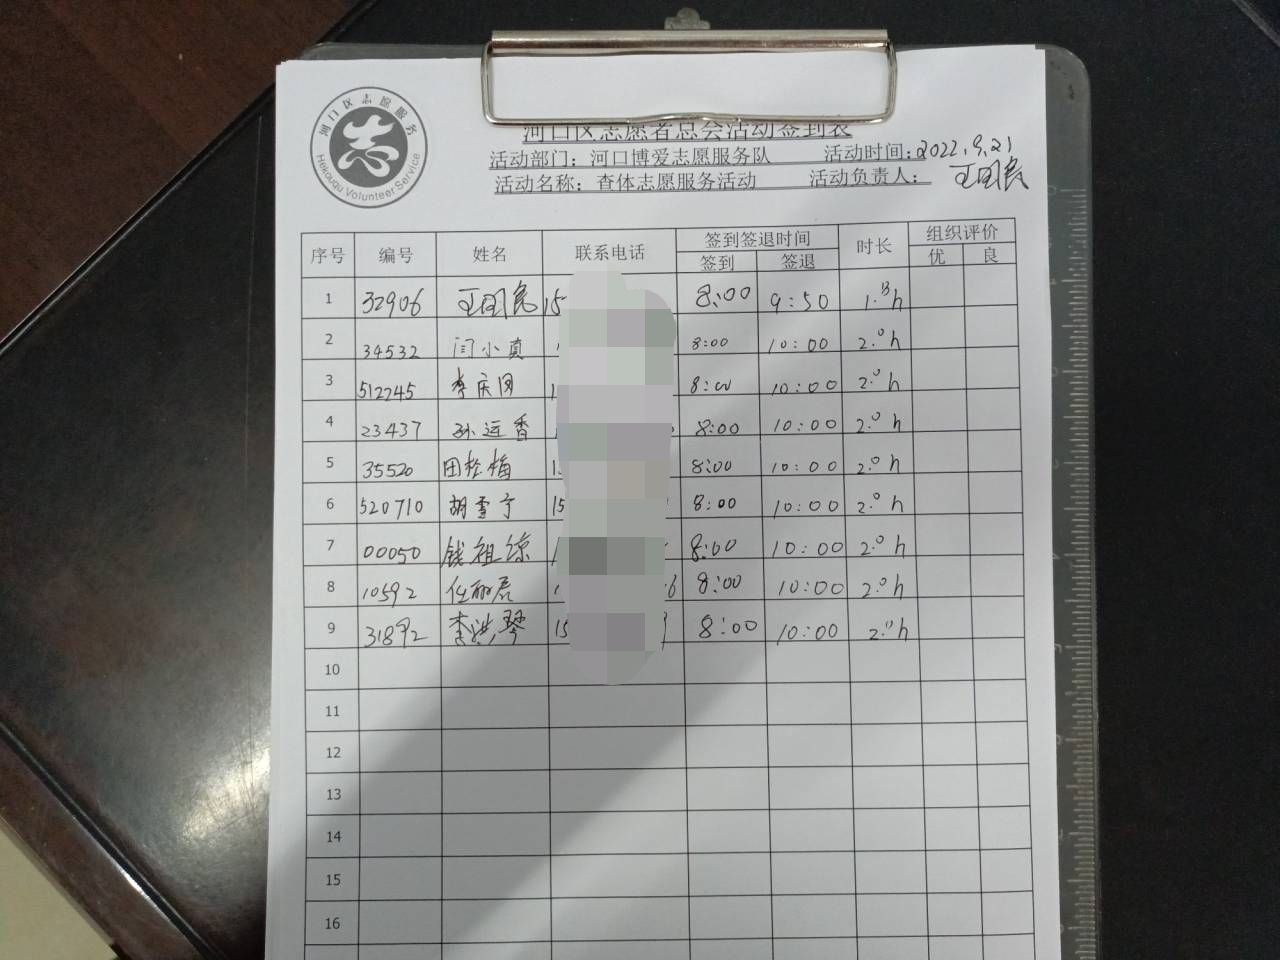 河口区志愿服务
Hekouqu Volunteer Service
河口区志愿者总会活动签到表
活动部门：河口博爱志愿服务队 活动时间：2022.9.21
活动名称：查体志愿服务活动 活动负责人：王国民
序号 编号 姓名 联系电话 签到签退时间 时长 组织评价
签到 签退 优 良
1 32906 王国民 15 8:00 9:50 1.8h
2 34532 闫小真 8:00 10:00 2.0h
3 512245 李庆国 1 8:00 10:00 2.0h
4 23437 孙运香 8:00 10:00 2.0h
5 35520 田稔梅 15 8:00 10:00 2.0h
6 520710 胡雪宁 15 8:00 10:00 2.0h
7 00050 钱祖琼 8:00 10:00 2.0h
8 10592 任丽君 1 6 8:00 10:00 2.0h
9 31892 李洪琴 15 8:00 10:00 2.0h
10
11
12
13
14
15
16